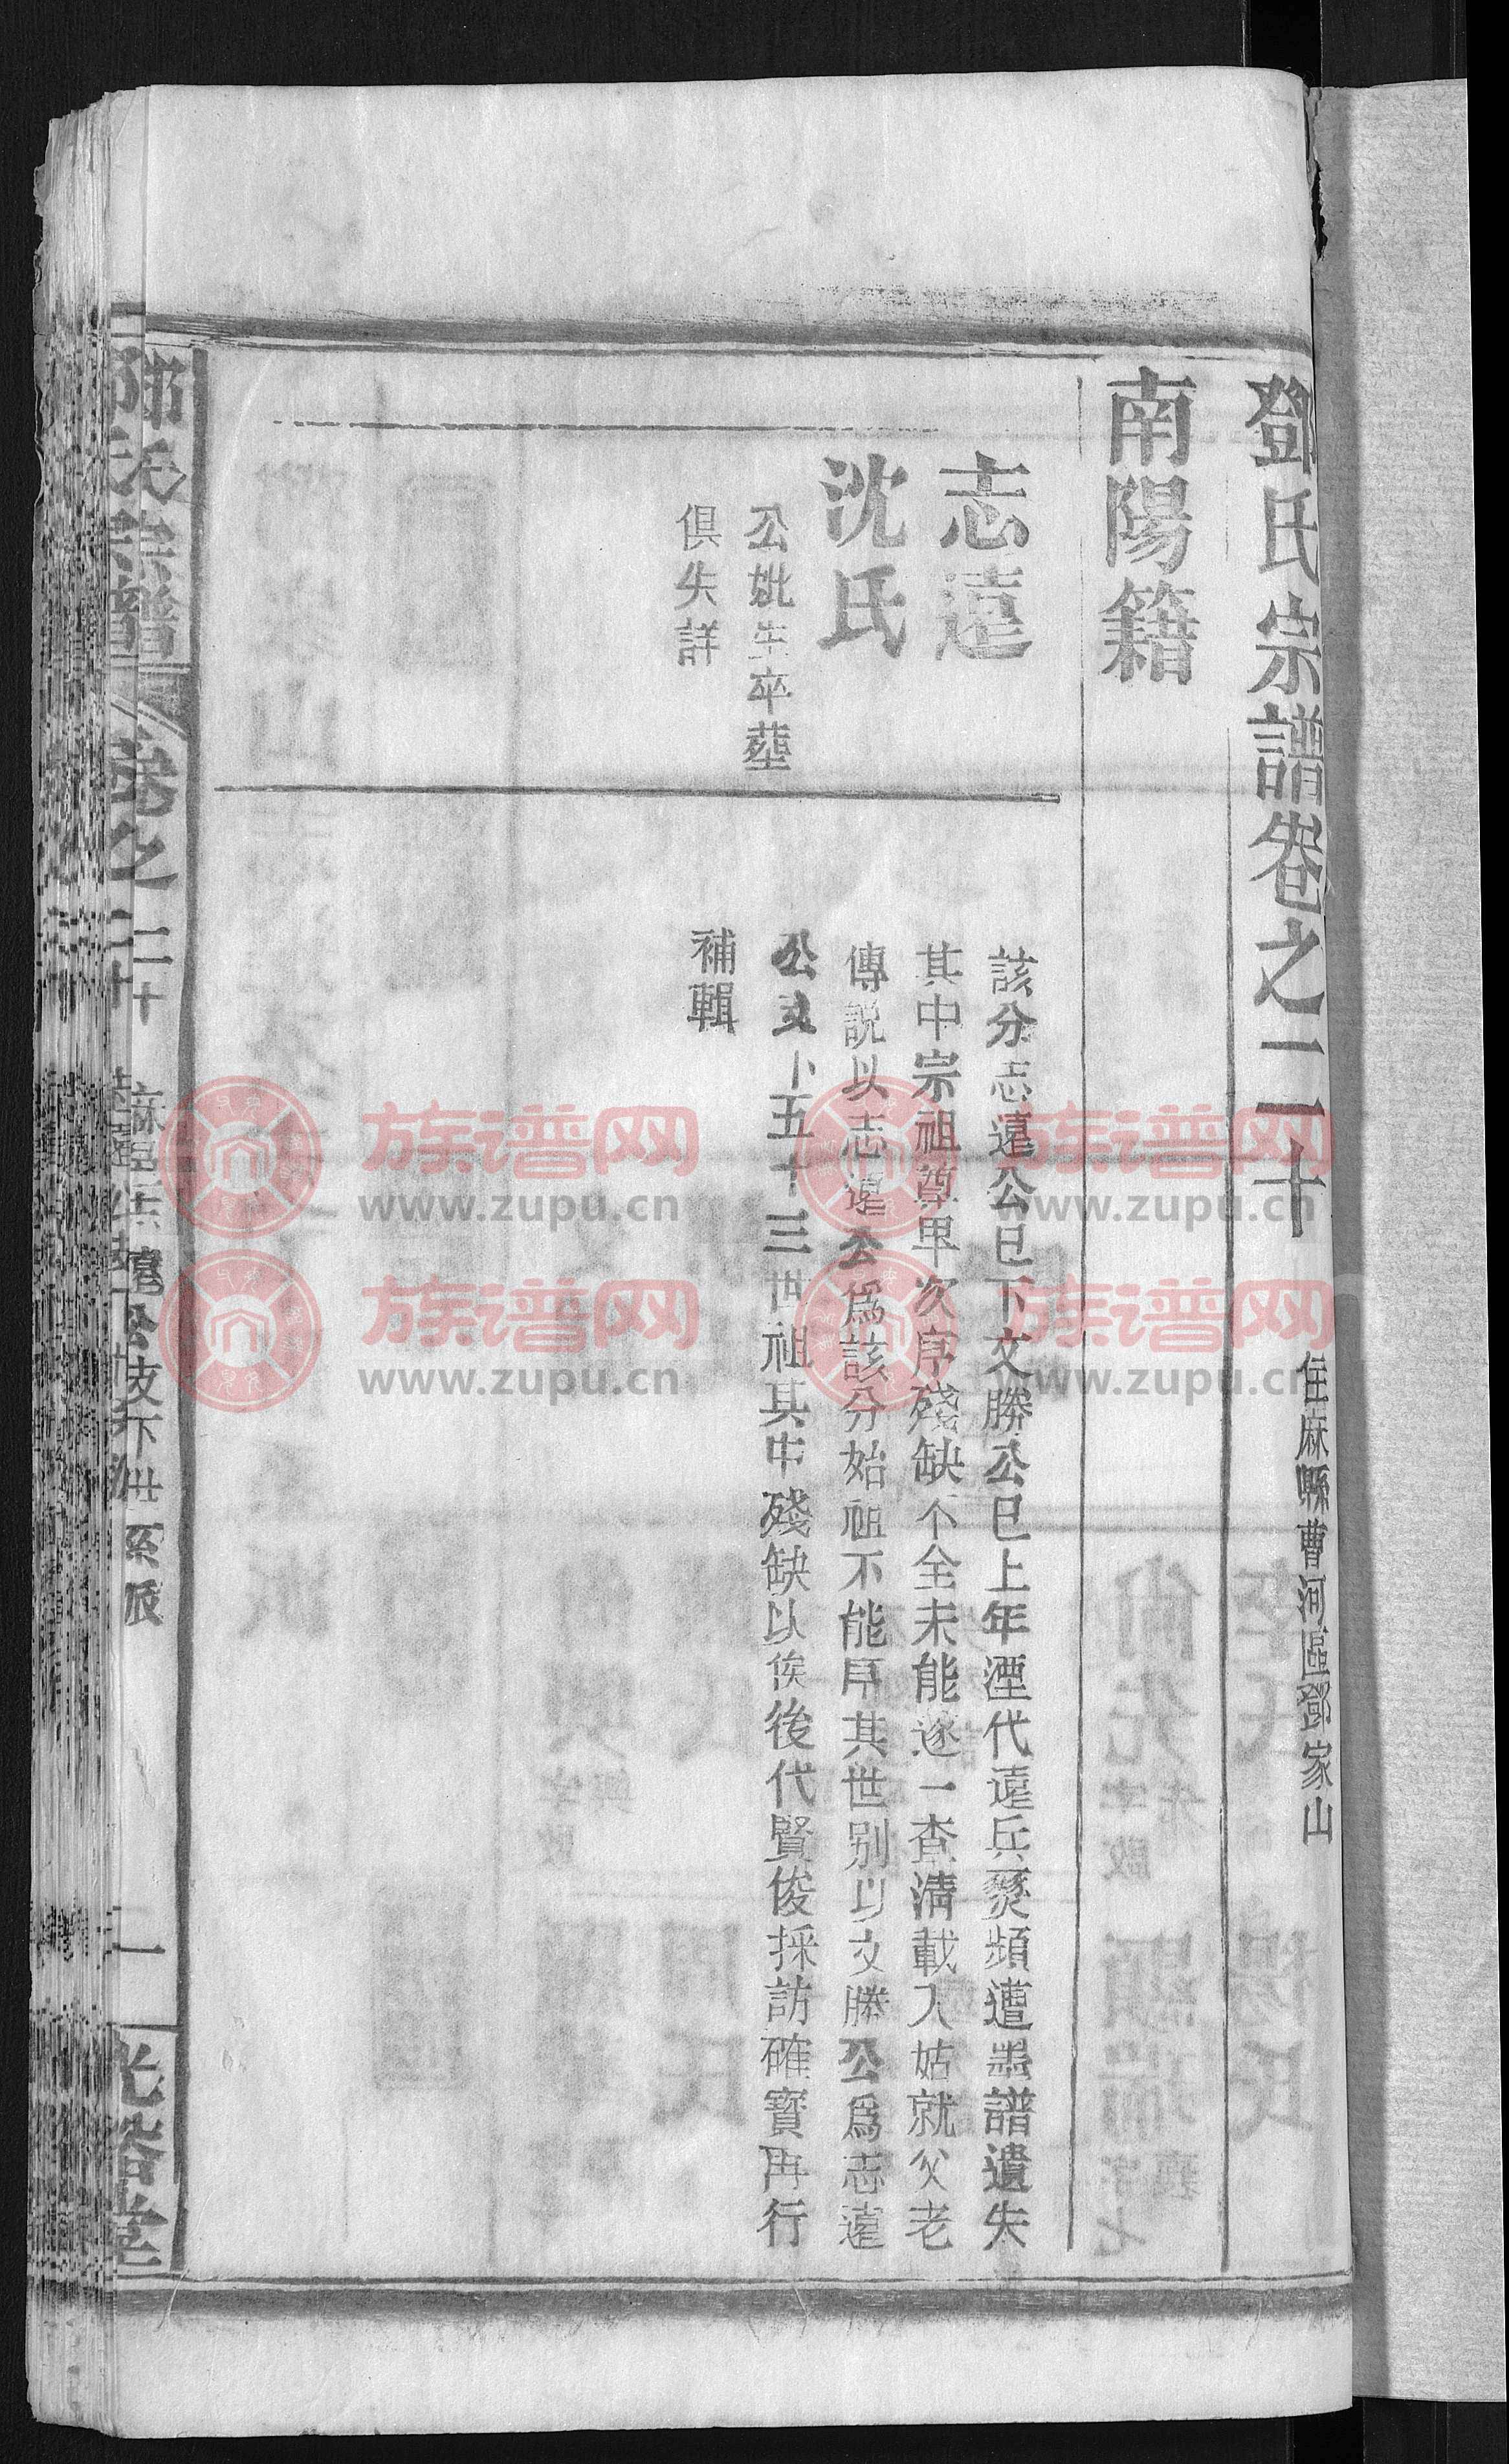 鄧氏宗譜卷之二十
住麻縣曹河區鄧家山
南陽籍
志遠
沈氏
公妣生卒塟
俱失詳
該分志遠公已下文勝公已上年湮代遠兵燹頻遭墨譜遺失
其中宗祖尊卑次序殘缺不全未能逐一查清載入姑就父老
傳説以志遠公爲該分始祖不能序其世别以文勝公爲志遠
公支下五十三世祖其中殘缺以俟後代賢俊採訪確實再行
補輯
鄧氏宗譜
卷之二十
公技下世系派
一
光裕堂
族谱网
www.zupu.cn
族谱网
www.zupu.cn
族谱网
www.zupu.cn
族谱网
www.zupu.cn